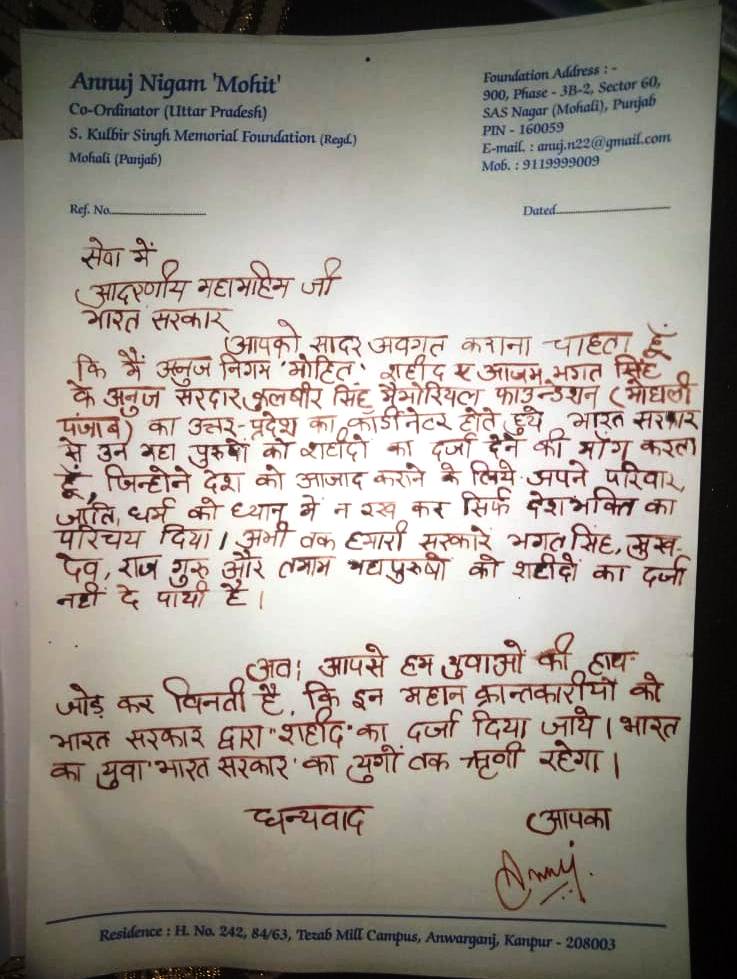 Annuj Nigam 'Mohit'
Co-Ordinator (Uttar Pradesh)
S. Kulbir Singh Memorial Foundation (Regd.)
Mohali (Panjab)
Foundation Address : -
900, Phase - 3B-2, Sector 60,
SAS Nagar (Mohali), Punjab
PIN - 160059
E-mail. : anuj.n22@gmail.com
Mob. : 9119999009
Ref. No.
Dated.
सेवा में
आदरणीय महामहिम जी
भारत सरकार
आपको सादर अवगत कराना चाहता हूँ
कि मैं अनुज निगम 'मोहित' शहीद ए आजम भगत सिंह
के अनुज सरदार कुलबीर सिंह मैमोरियल फाउन्डेशन (मोहाली
पंजाब) का उत्तर-प्रदेश का कार्डीनेटर होते हुये भारत सरकार
से उन महा पुरुषो को शहीदो का दर्जा देने की माँग करता
हूँ, जिन्होने देश को आजाद कराने के लिये अपने परिवार,
जाति, धर्म को ध्यान में न रख कर सिर्फ देशभक्ति का
परिचय दिया। अभी तक हमारी सरकारे भगत सिंह, सुख-
देव, राज गुरु और तमाम महापुरुषो को शहीदो का दर्जा
नहीं दे पायी है।
अतः आपसे हम युवाओ की हाथ
जोड़ कर विनती है, कि इन महान क्रान्तकारीयो को
भारत सरकार द्वारा "शहीद" का दर्जा दिया जाये। भारत
का युवा 'भारत सरकार' का युगों तक ऋणी रहेगा।
धन्यवाद
आपका
Annuj.
Residence : H. No. 242, 84/63, Tezab Mill Campus, Anwarganj, Kanpur - 208003